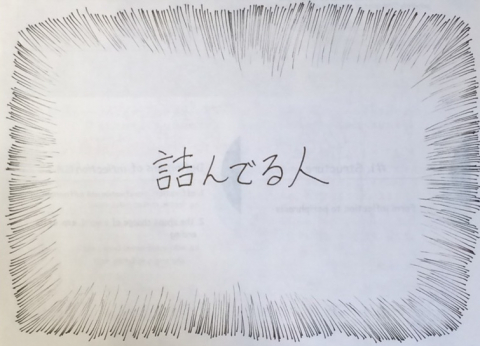 詰んでる人